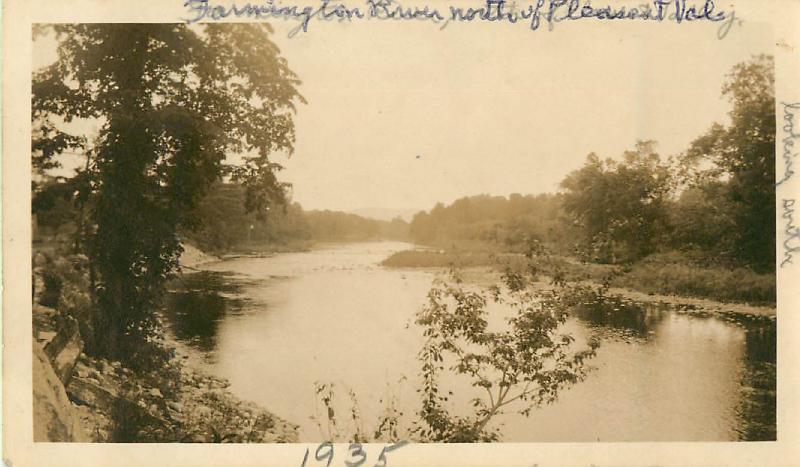 Farmington River, north of Pleasant Valy.
looking south
1935